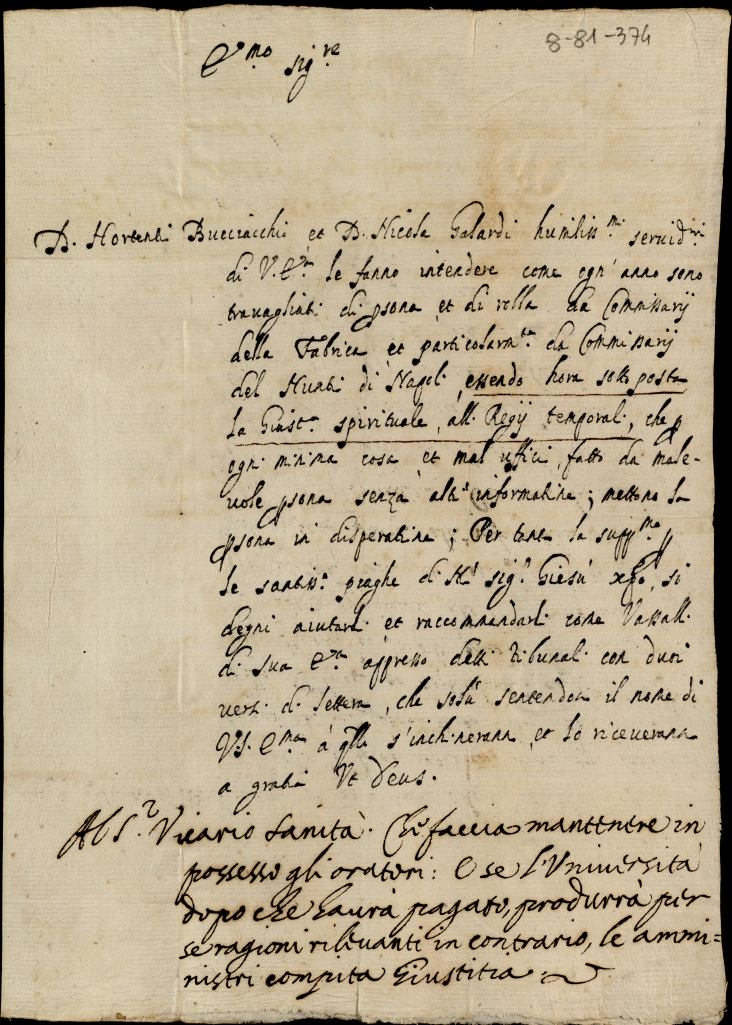 8-81-374
E.mo sig.re
D. Hortentio Bucciacchio et D. Nicola Galardi humiliss.mi seruid.ri
di V. E.za le fanno intendere come ogn' anno sono
trauagliati di psona et di robba da Commissarij
della Fabrica et particolarm.te da Commissarij
del Nuntio di Napoli, essendo hora sottoposta
la Giust.a spirituale, alli Regij temporali, che p
ogni minima cosa et mal ufficio, fatto da male-
uole psona senza altra informatione; mettono la
psona in disperatione; Per tanto la supp.no p
le santiss.e piaghe di N.ro sig.r Giesù xpo, si
degni aiutarli et raccommandarli come Vassalli
di sua E.za appresso detti tribunali con dui
uersi di lettera, che solo sentendo il nome di
V.S. E.ma à qlli s'inchineranno, et lo riceueranno
a gratia Ut Deus.
Al S.r Vicario Sanità. Che faccia mantenere in
possesso gli oratori: E se l'Vniuersità
dopo che haurà pagato, produrrà per
se ragioni rileuanti in contrario, le ammi=
nistri compita Giustitia.